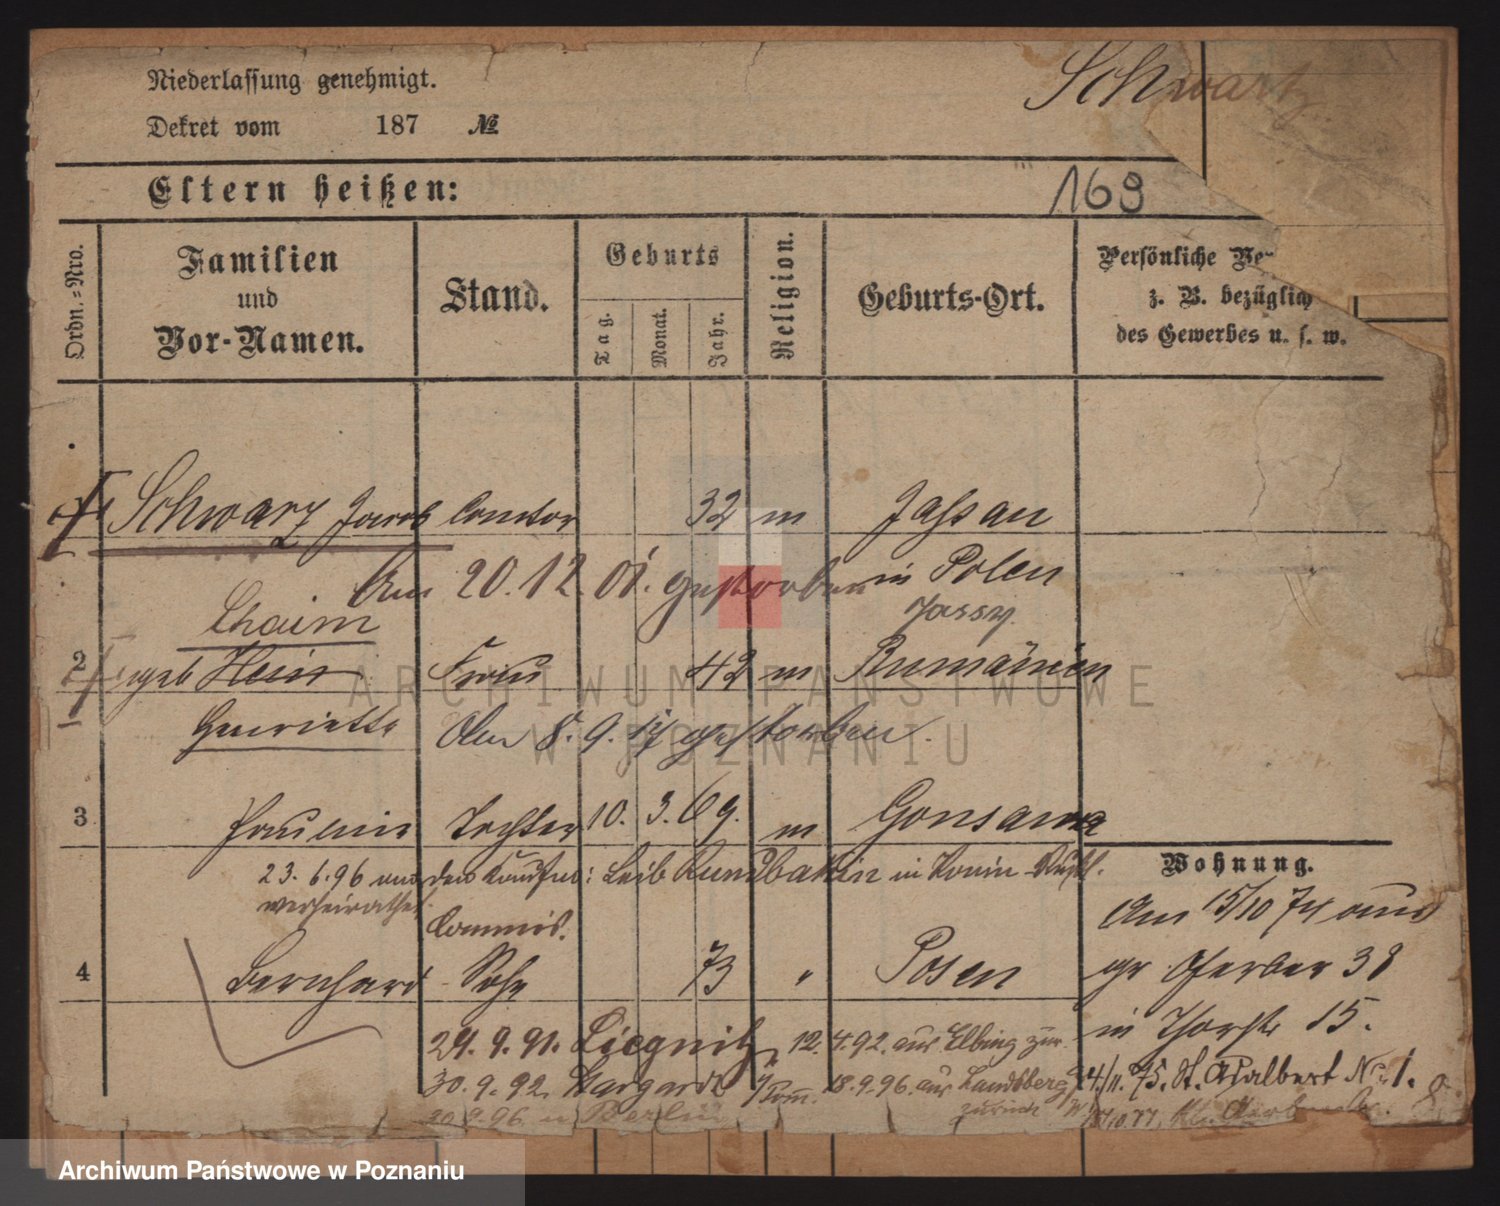 Schwartz
Niederlassung genehmigt.
Dekret vom 187 №
Eltern heißen:
169
Ordn.=Nro.
Familien
und
Vor-Namen.
Stand.
Geburts
Tag.
Monat.
Jahr.
Religion.
Geburts-Ort.
Persönliche Ve
z. B. bezüglich
des Gewerbes u. s. w.
Schwarz Jacob Cantor 32 m Jassan
Am 20.12.01. gestorben in Polen
Chaim Jassy.
2 geb Hein Frau 42 m Rumänien
Henriette Am 8.9.17 gestorben.
3 Pauline Tochter 10. 3. 69. m Gonsawa
23.6.96 an den Kaufm: Leib in Konin
verheirathet
Commis.
4 Bernhard Sohn 73 " Posen
29.9.91. Liegnitz, 12.4.92. aus Elbing zur.
30.9.92 Stargard i/Pom. 18.9.96. aus Landsberg
zurück
30.9.96 n Berlin
Wohnung.
Am 15/10 74 aus
gr Gerber 38
in 15.
4/11.75. St. Adalbert No 1.
ARCHIWUM PAŃSTWOWE
W POZNANIU
Archiwum Państwowe w Poznaniu